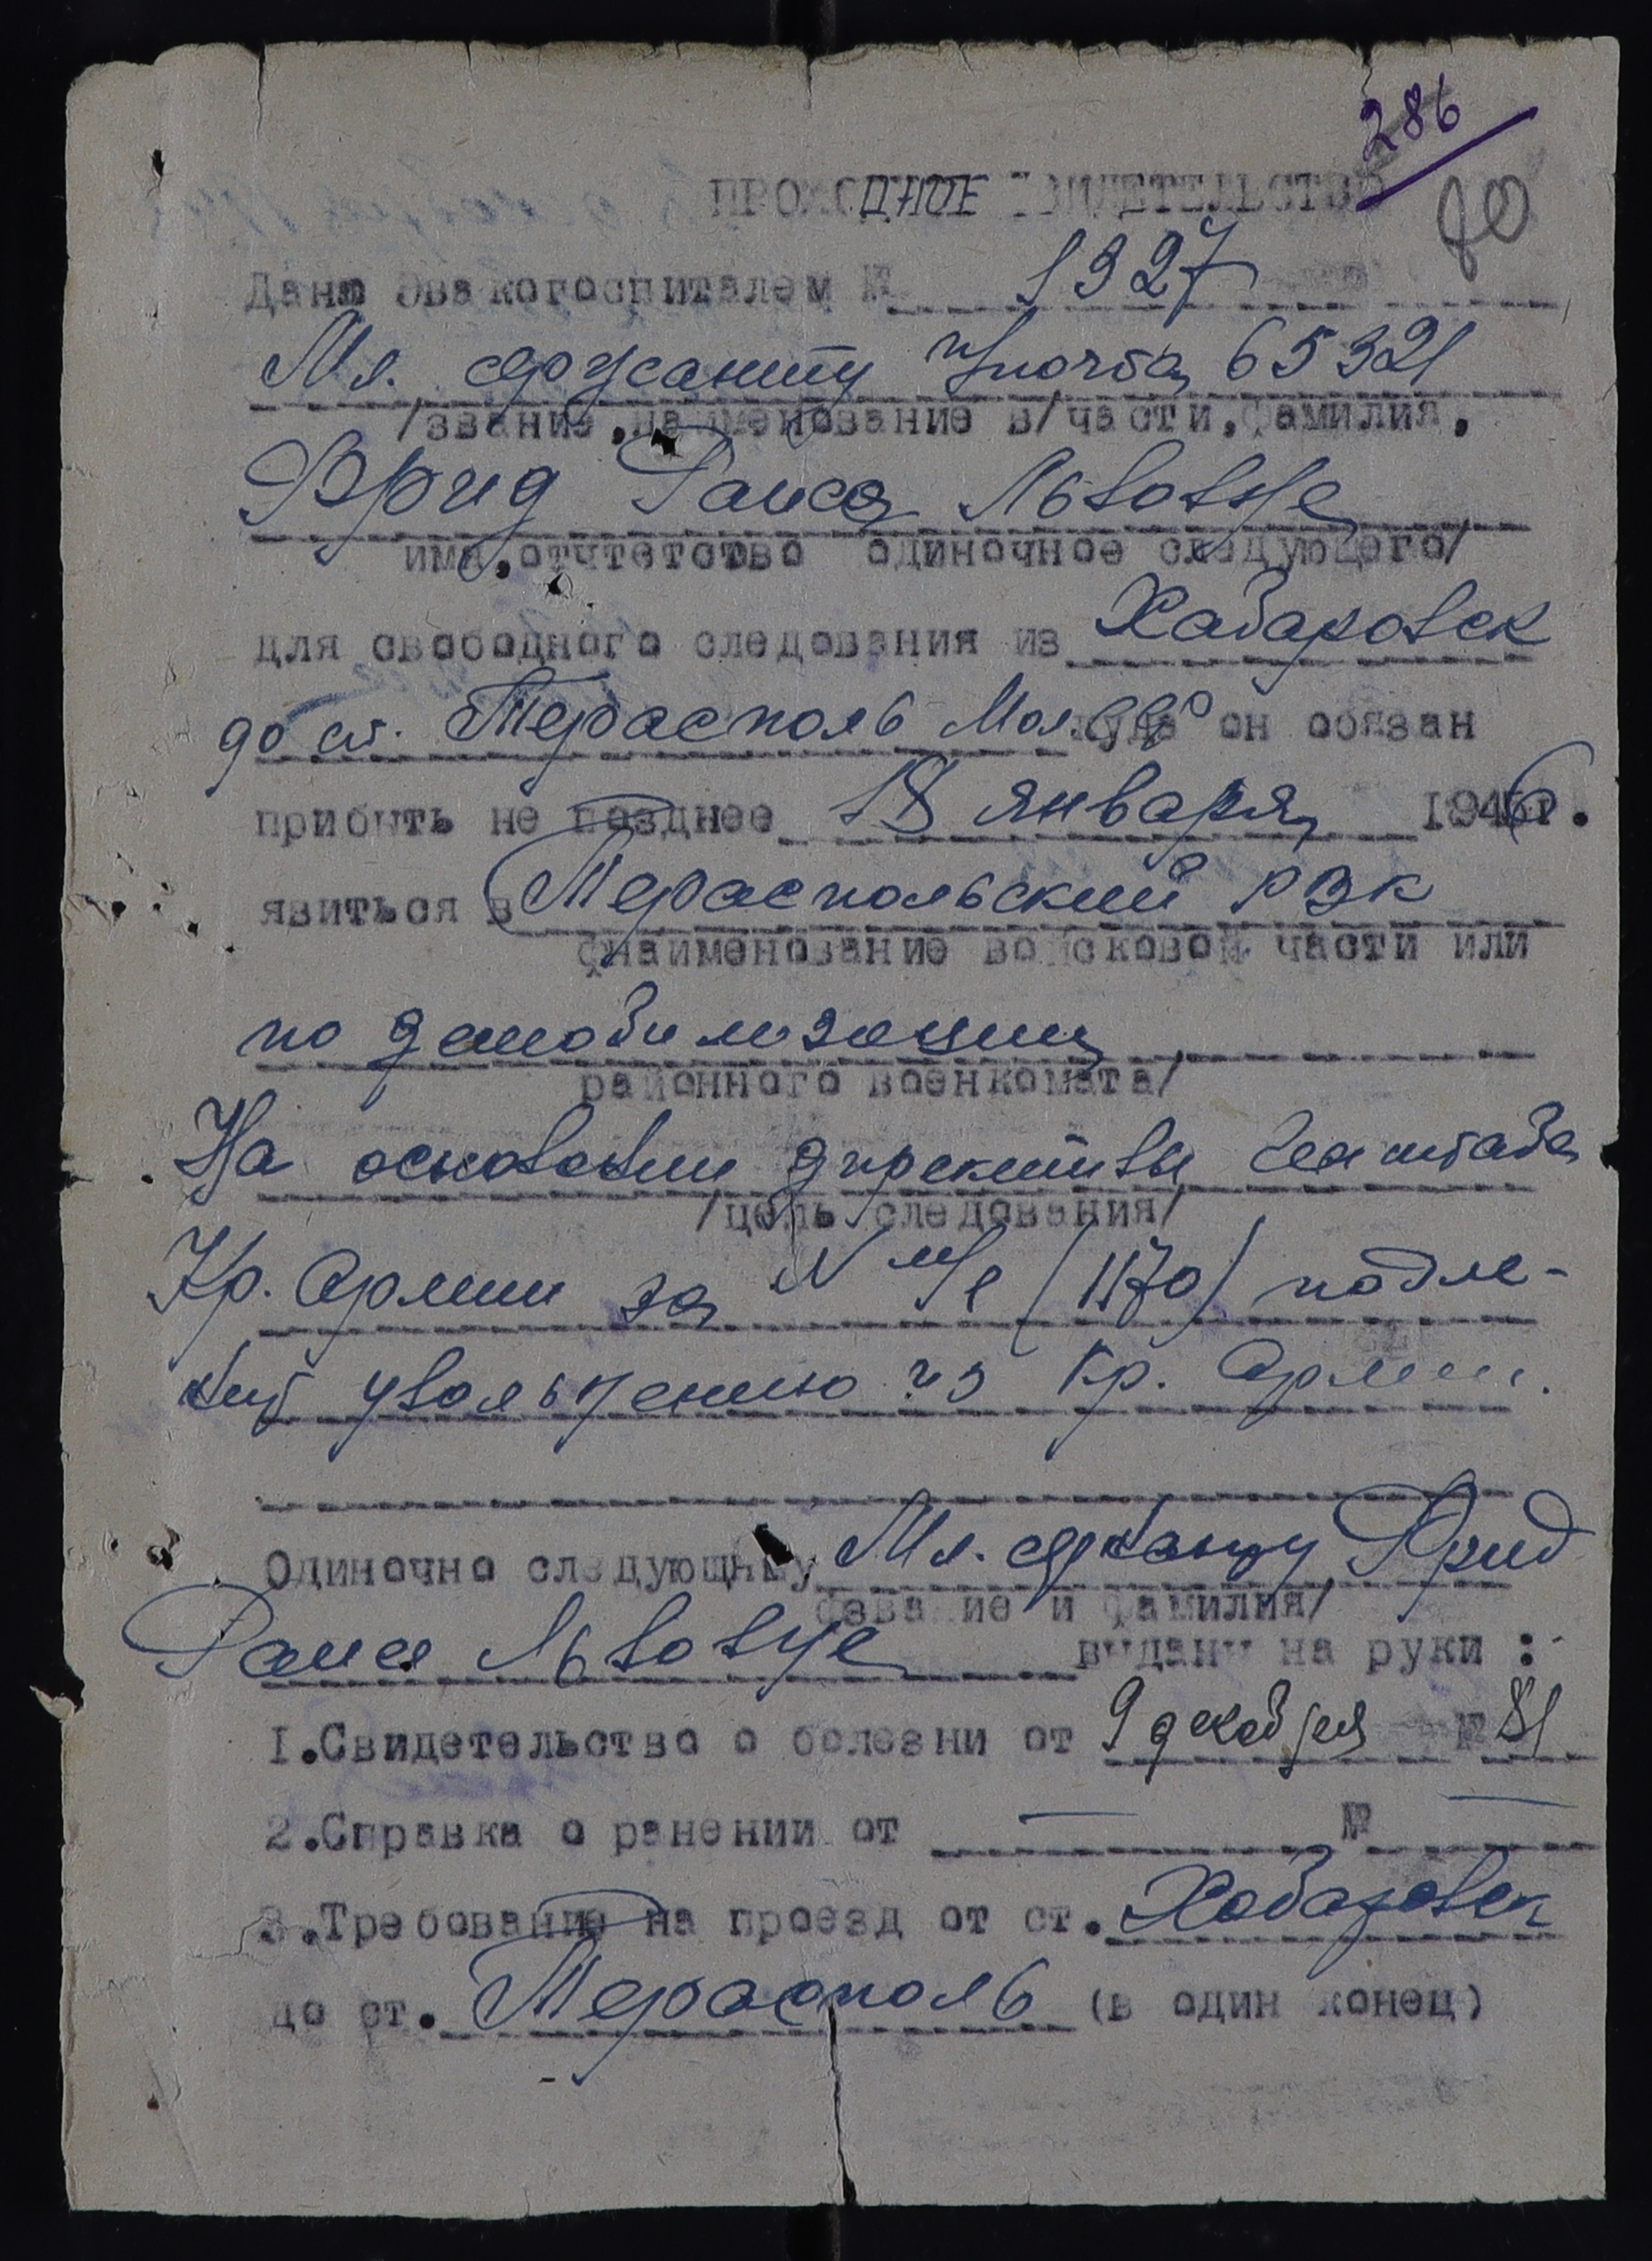 286
80
ПРОХОДНОЕ СВИДЕТЕЛЬСТВО
Дано Эвакогоспиталем № 1327
Мл. сержанту п/почта 65321
/звание, наименование в/части, фамилия,
Фрид Раиса Львовне
имя, отчтетство одиночное следующего/
для свободного следования из Хабаровск
до ст. Терасполь куда он обязан
прибыть не позднее 18 января 1946г.
явиться в Тераспольский РВК
/наименование войсковой части или
по демобилизации
районного военкомата/
На основании директивы Генштаба
/цель следования/
Кр. Армии за № /1170/ подле-
жит увольнению из Кр. Армии.
Одиночно следующему Мл. сержанту Фрид
/звание и фамилия/
Раисе Львовне выданы на руки :
1.Свидетельство о болезни от 9 декабря № 81
2.Справка о ранении от — № —
3.Требование на проезд от ст. Хабаровск
до ст. Терасполь (в один конец)